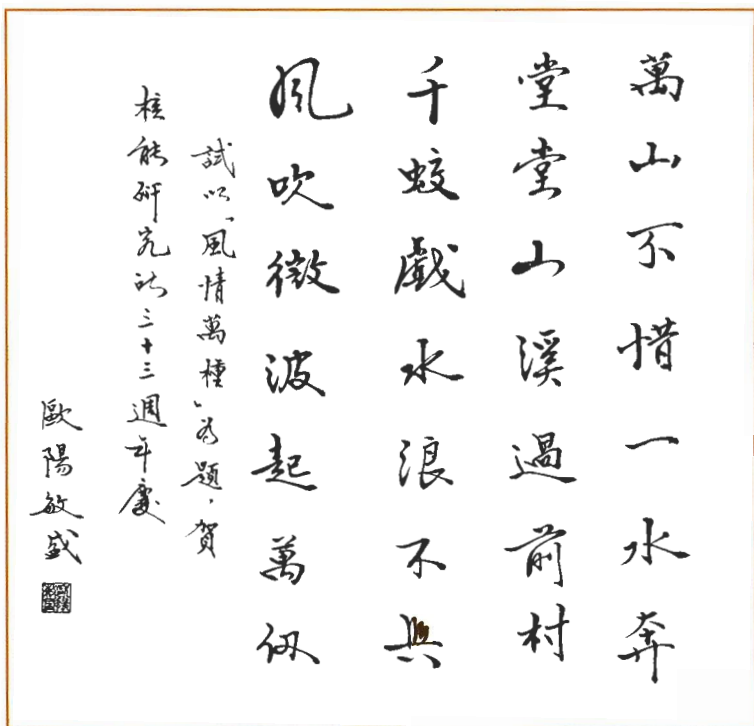 萬山不惜一水奔
堂堂山溪過前村
千蛟戲水浪不興
風吹微波起萬仞
試以「風情萬種」為題，賀
核能研究所三十三週年慶
歐陽敏盛